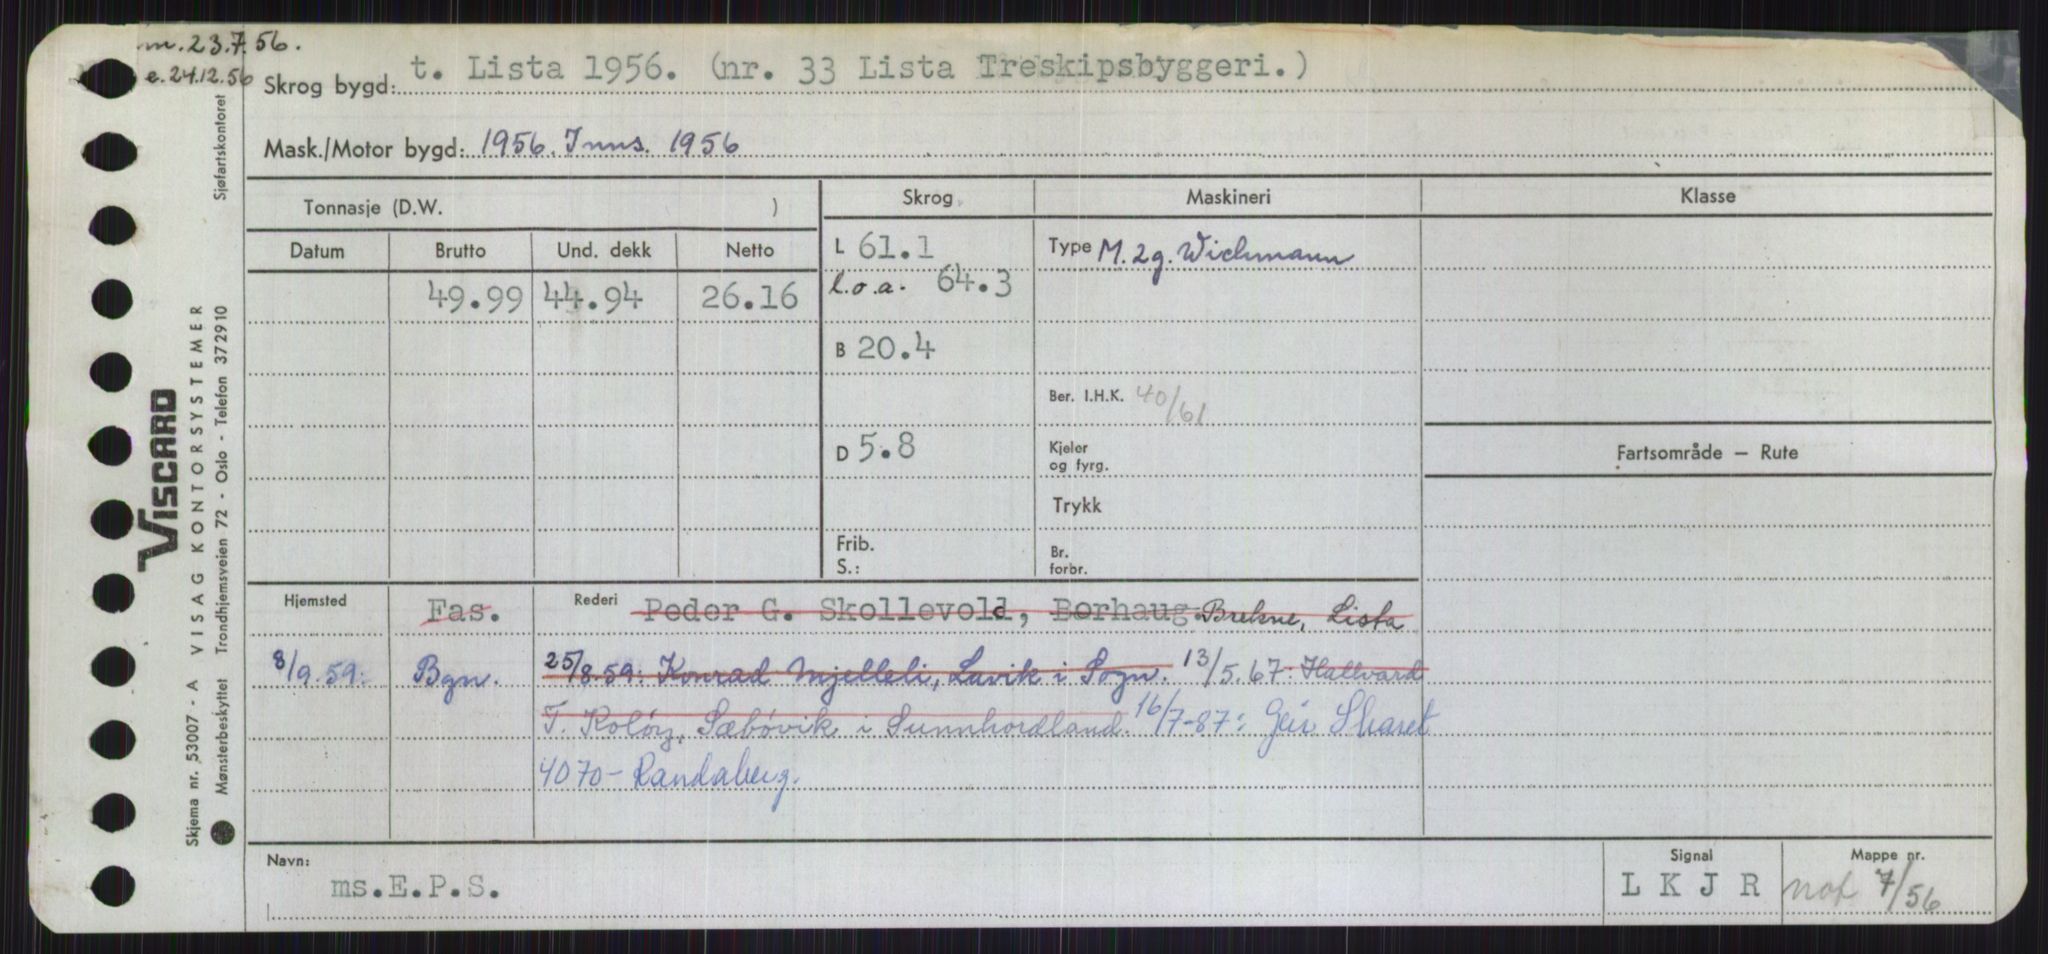 m. 23.7.56.
e. 24.12.56
Skrog bygd: t. Lista 1956. (nr. 33 Lista Treskipsbyggeri.)
Mask./Motor bygd: 1956. Inns. 1956
Tonnasje (D.W. )
Skrog
Maskineri
Klasse
Datum Brutto Und. dekk Netto
L 61.1
Type M. 2g. Wichmann
49.99 44.94 26.16
l.o.a. 64.3
B 20.4
Ber. I.H.K. 40/61
D 5.8
Kjeler
og fyrg.
Fartsområde — Rute
Trykk
Frib.
S.:
Br.
forbr.
Hjemsted Fas. Rederi Peder G. Skollevold, Borhaug. Brekne, Lista
8/9.59: Bgn. 25/8.59: Konrad Mjelleli, Lavik i Sogn. 13/5.67: Hallvard
T. Koløy, Sæbøvik i Sunnhordland. 16/7-87: Geir
4070 - Randaberg.
Navn: ms.E.P.S.
Signal L K J R
Mappe nr. not 7/56
VISCARD
Skjema nr. 53007 - A VISAG KONTORSYSTEMER
Mønsterbeskyttet Trondhjemsveien 72 - Oslo - Telefon 372910 Sjøfartskontoret